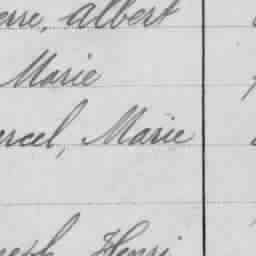 erre, Albert
Marie
arcel, Marie
seph Henri